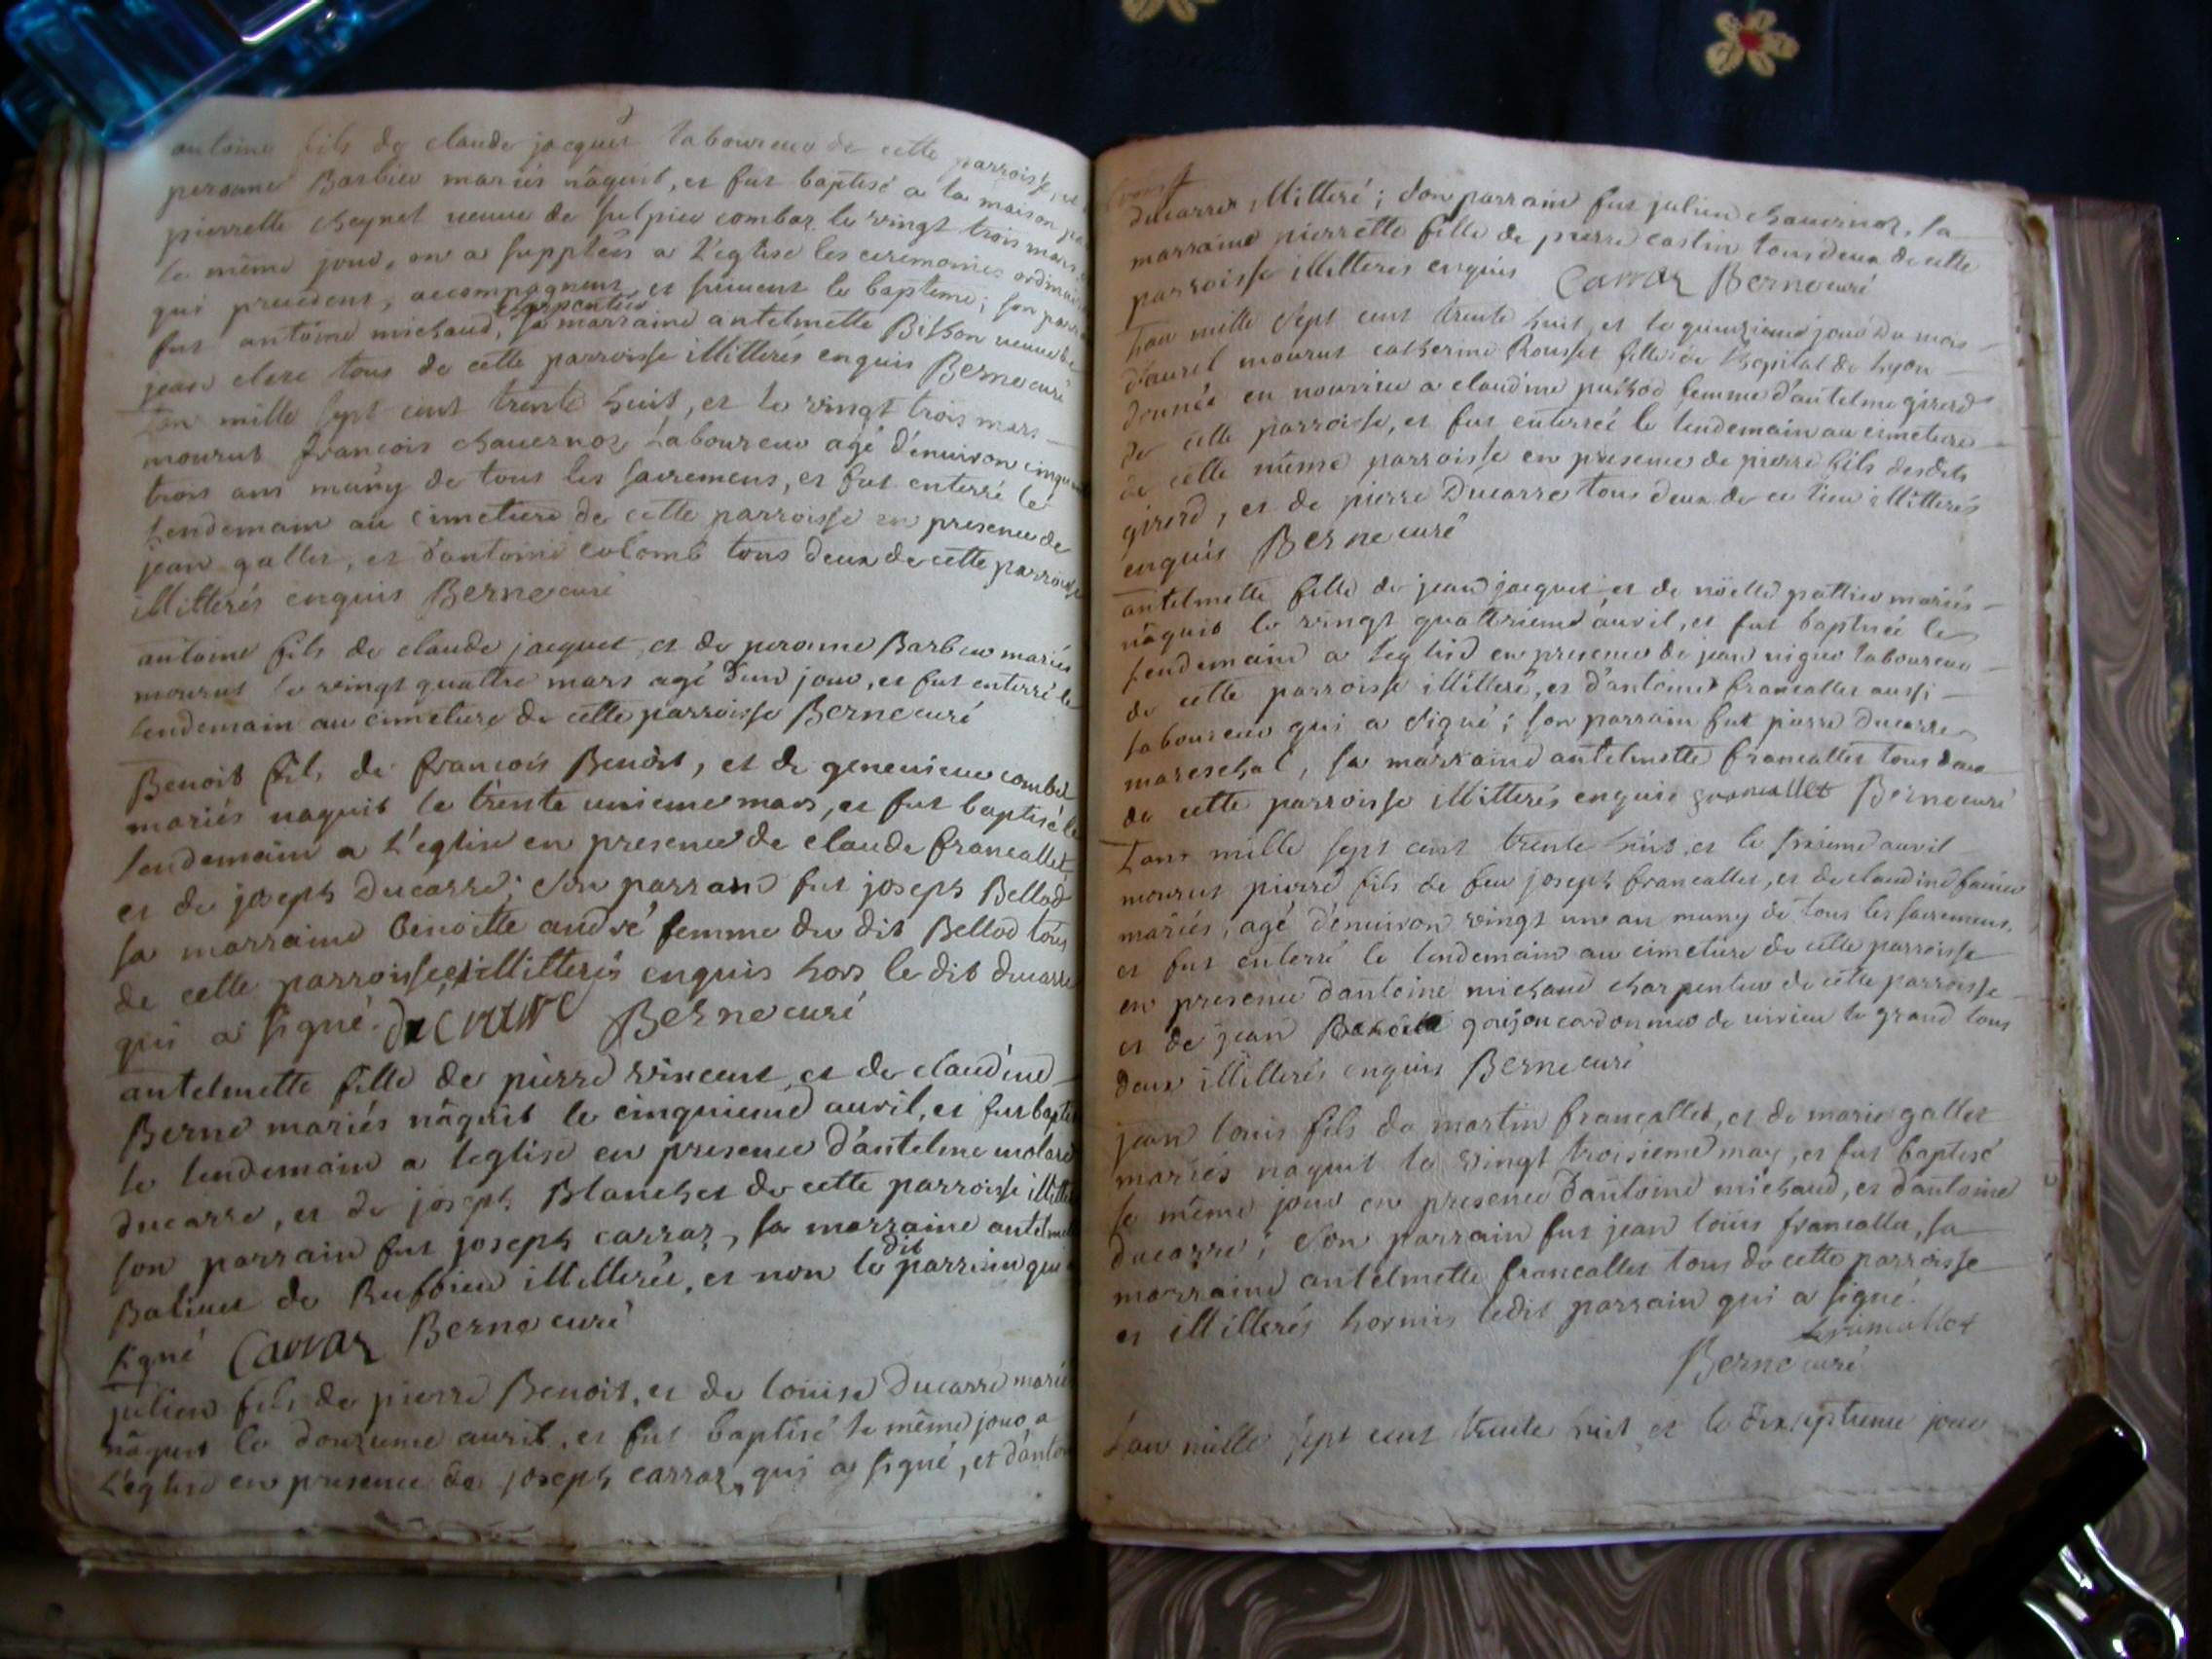 antoine fils de claude jacquet laboureur de cette parroisse, et
peronne Barbier mariés nâquit, et fut baptisé a la maison pa
pierrette cheynel veuve de sulpice combaz le vingt trois mars
le même jour, on a supplées a L'eglise les ceremonies ordinai
qui precedent, accompagnent, et suivent le bapteme; son parra
charpentier
fut antoine michaud, sa marraine antelmette Bithon veuve de
jean clerc tous de cette parroisse illitterés enquis Berne curé
L'an mille sept cent trente huit, et le vingt trois mars
mourut francois chavernoz Laboureur agé d'environ cinqua
trois ans muny de tous les sacremens, et fut enterré le
Lendemain au cimetiere de cette parroisse en presence de
jean gallet, et d'antoine colomb tous deux de cette parroisse
illitterés enquis Berne curé
antoine fils de claude jacquet, et de peronne Barbier mariés
mourut le vingt quattre mars agé d'un jour, et fut enterré le
lendemain au cimetiere de cette parroisse Berne curé
Benoit fils de francois Benoit, et de genevieve combet
mariés naquit le trente unieme mars, et fut baptisé le
lendemain a L'eglise en presence de claude francallet,
et de joseph Ducarre; son parrain fut joseph Bellod
sa marraine Benoitte andré femme du dit Bellod tous
de cette parroisse, et illitterés enquis hors le dit ducarre
qui a signé. ducarre Berne curé
antelmette fille de pierre vincent, et de claudine
Berne mariés nâquit le cinquieme avril, et fut bapti
le lendemain a leglise en presence d'antelme molard
ducarre, et de joseph Blanchet de cette parroisse illitte
son parrain fut joseph carraz, sa marraine antelme
dit
Balivet de Ruffieu illitterée, et non le parrain qui
signé Carraz Berne curé
julien fils de pierre Benoit, et de louise Ducarre marié
nâquit le douzieme avril, et fut baptisé le même jour a
L'eglise en presence de joseph carraz, qui a signé, et d'anto
ducarre illitteré; son parrain fut julien chavernoz, sa
marraine pierrette fille de pierre castin tous deux de cette
parroisse illitterés enquis Carraz Berne curé
L'an mille sept cent trente huit, et le quinzieme jour du mois
d'avril mourut catherine Rousset fille de l'hopital de Lyon
donnée en nourrice a claudine puthod femme d'antelme girerd
de cette parroisse, et fut enterrée le lendemain au cimetiere
de cette même parroisse en presence de pierre fils desdits
girerd, et de pierre Ducarre tous deux de ce lieu illitterés
enquis Berne curé
antelmette fille de jean jacquet et de noëlle pattieu mariés
nâquit le vingt quattrieme avril, et fut baptisée le
Lendemain a leglise en presence de jean vigier laboureur
de cette parroisse illitteré, et d'antoine francallet aussi
laboureur qui a signé; son parrain fut pierre Ducarre
mareschal, sa marraine antelmette francallet tous deux
de cette parroisse illitterés enquis francallet Berne curé
Lan mille sept cent trente huit, et le sixieme avril
mourut pierre fils de feu joseph francallet, et de claudine favier
mariés, agé d'environ vingt un an muny de tous les sacremens,
et fut enterré le lendemain au cimetiere de cette parroisse
en presence d'antoine michaud charpentier de cette parroisse
et de jean goujon cordonnier de virieu le grand tous
deux illitterés enquis Berne curé
jean louis fils de martin francallet, et de marie gallet
mariés naquit le vingt troisieme may, et fut baptisé
le même jour en presence d'antoine michaud, et d'antoine
ducarre; son parrain fut jean louis francallet, sa
marraine antelmette francallet tous de cette parroisse
et illitterés hormis ledit parrain qui a signé.
francallet
Berne curé
L'an mille sept cent trente huit, et le dix septieme jour